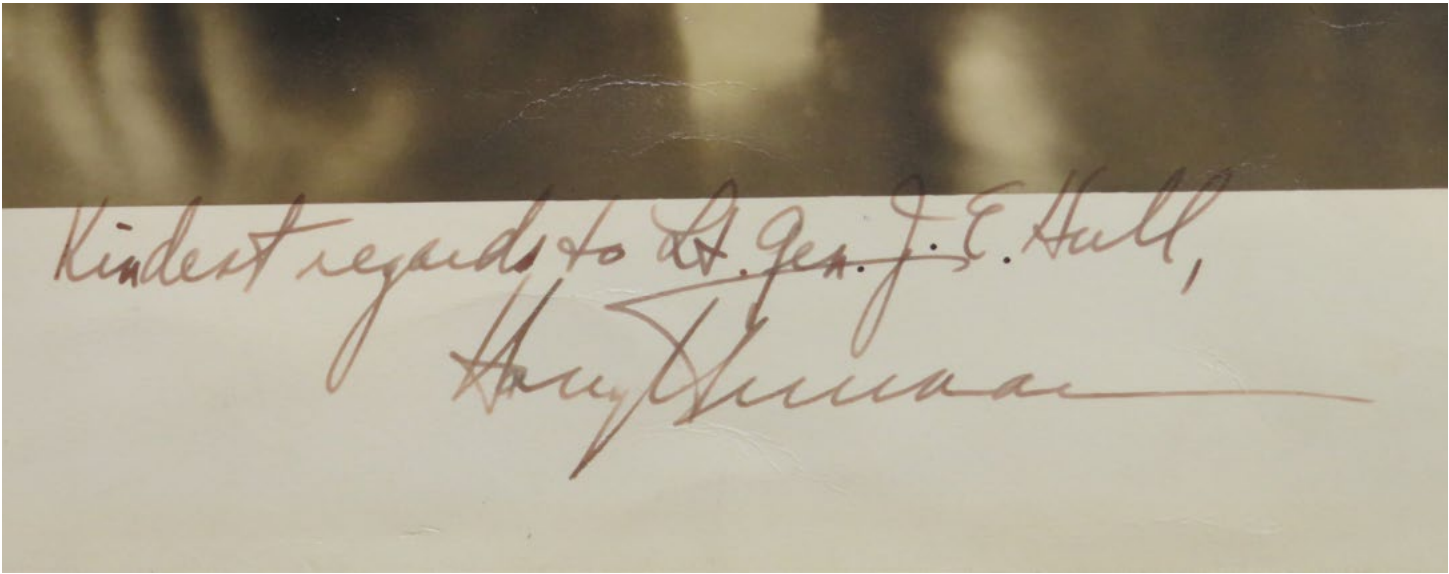 Kindest regards to Lt. Gen. J. E. Hull,
Harry Truman